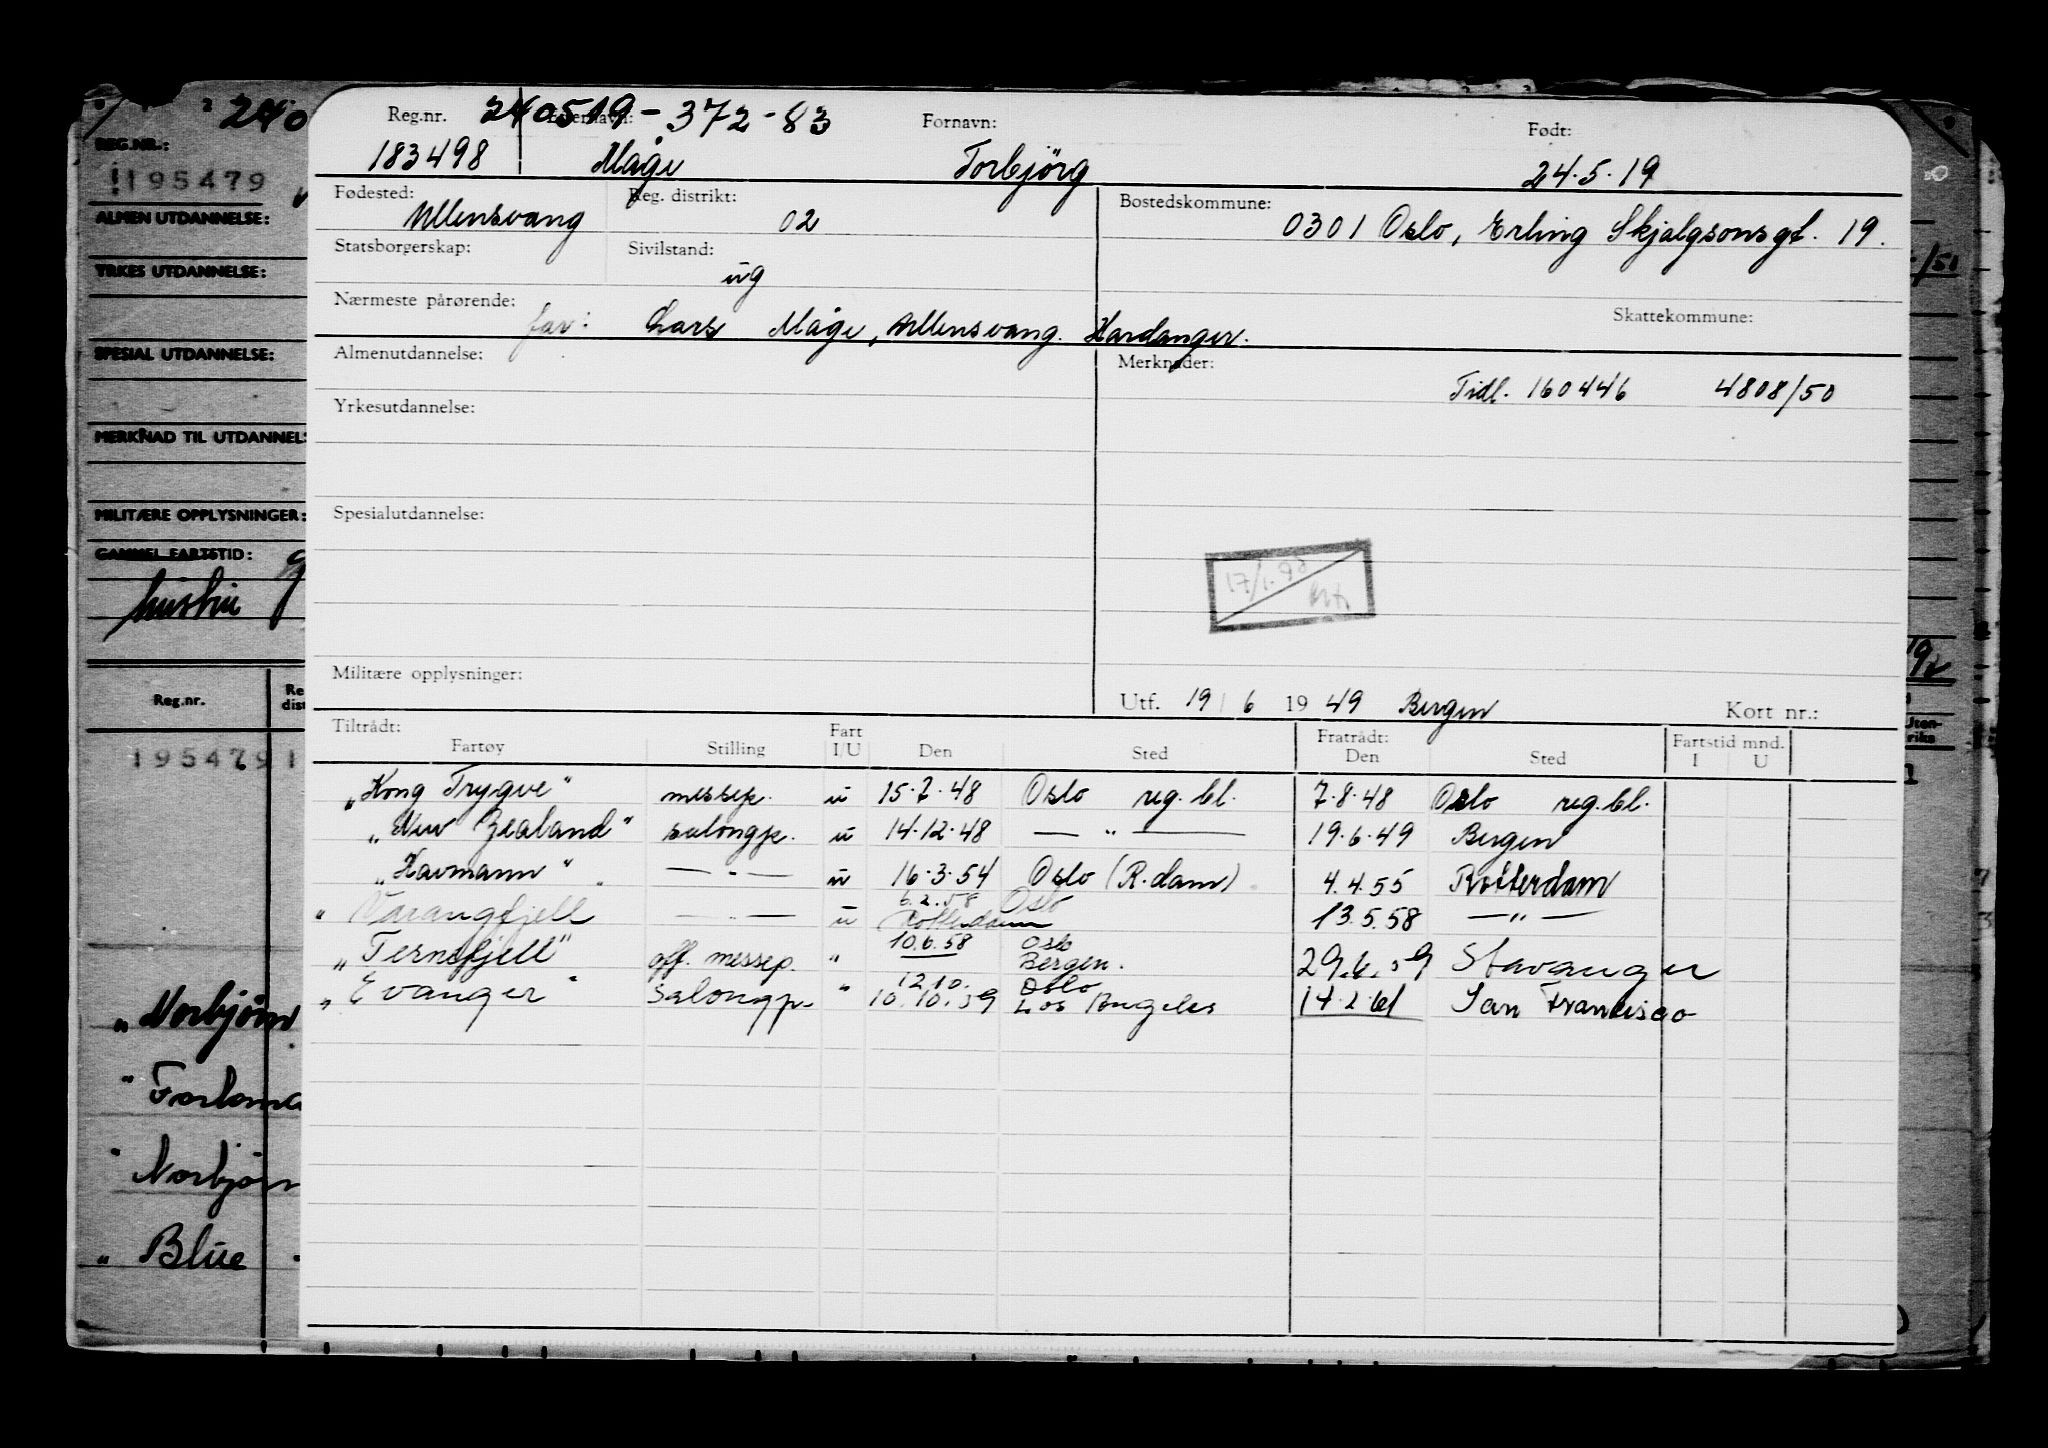 Reg.nr. 240519-372-83 Fornavn: Født:
183498 Måge Torbjörg 24.5.19
Fødested: Ullensvang Reg. distrikt: 02 Bostedskommune: 0301 Oslo, Erling Skjalgsonsgt. 19.
Statsborgerskap: Sivilstand: ug
Nærmeste pårørende: far: Lars Måge, Ullensvang. Hardanger. Skattekommune:
Almenutdannelse: Merknader: Tidl. 160446 4808/50
Yrkesutdannelse:
Spesialutdannelse:
Militære opplysninger:
Utf. 19/6 1949 Bergen Kort nr.:
Tiltrådt: Fart Fratrådt: Fartstid mnd.
Fartøy Stilling I/U Den Sted Den Sted I U
"Kong Trygve" messep. u 15.7.48 Oslo reg.bl. 7.8.48 Oslo reg.bl.
"New Zealand" salongp. u 14.12.48 — " — 19.6.49 Bergen
"Havmann" — " — u 16.3.54 Oslo (R.dam) 4.4.55 Rotterdam
6.2.58 Oslo
" Karangfjell — " — u Rotterdam 13.5.58 — " —
10.6.58 Oslo
"Ternefjell" off. messep. " Bergen. 29.6.59 Stavanger
12.10. Oslo
"Evanger" Salongp. " 10.10.59 Los Angeles 14.2.61 San Francisco
240
REG.NR.:
!195479
ALMEN UTDANNELSE:
YRKES UTDANNELSE:
SPESIAL UTDANNELSE:
MERKNAD TIL UTDANNELS
MILITÆRE OPPLYSNINGER:
GAMMEL FARTSTID:
Reg.nr. Re
dist
195479 1
"Norbjørn
"
" Norbjørn
" Blue
/51
Uten-
riks